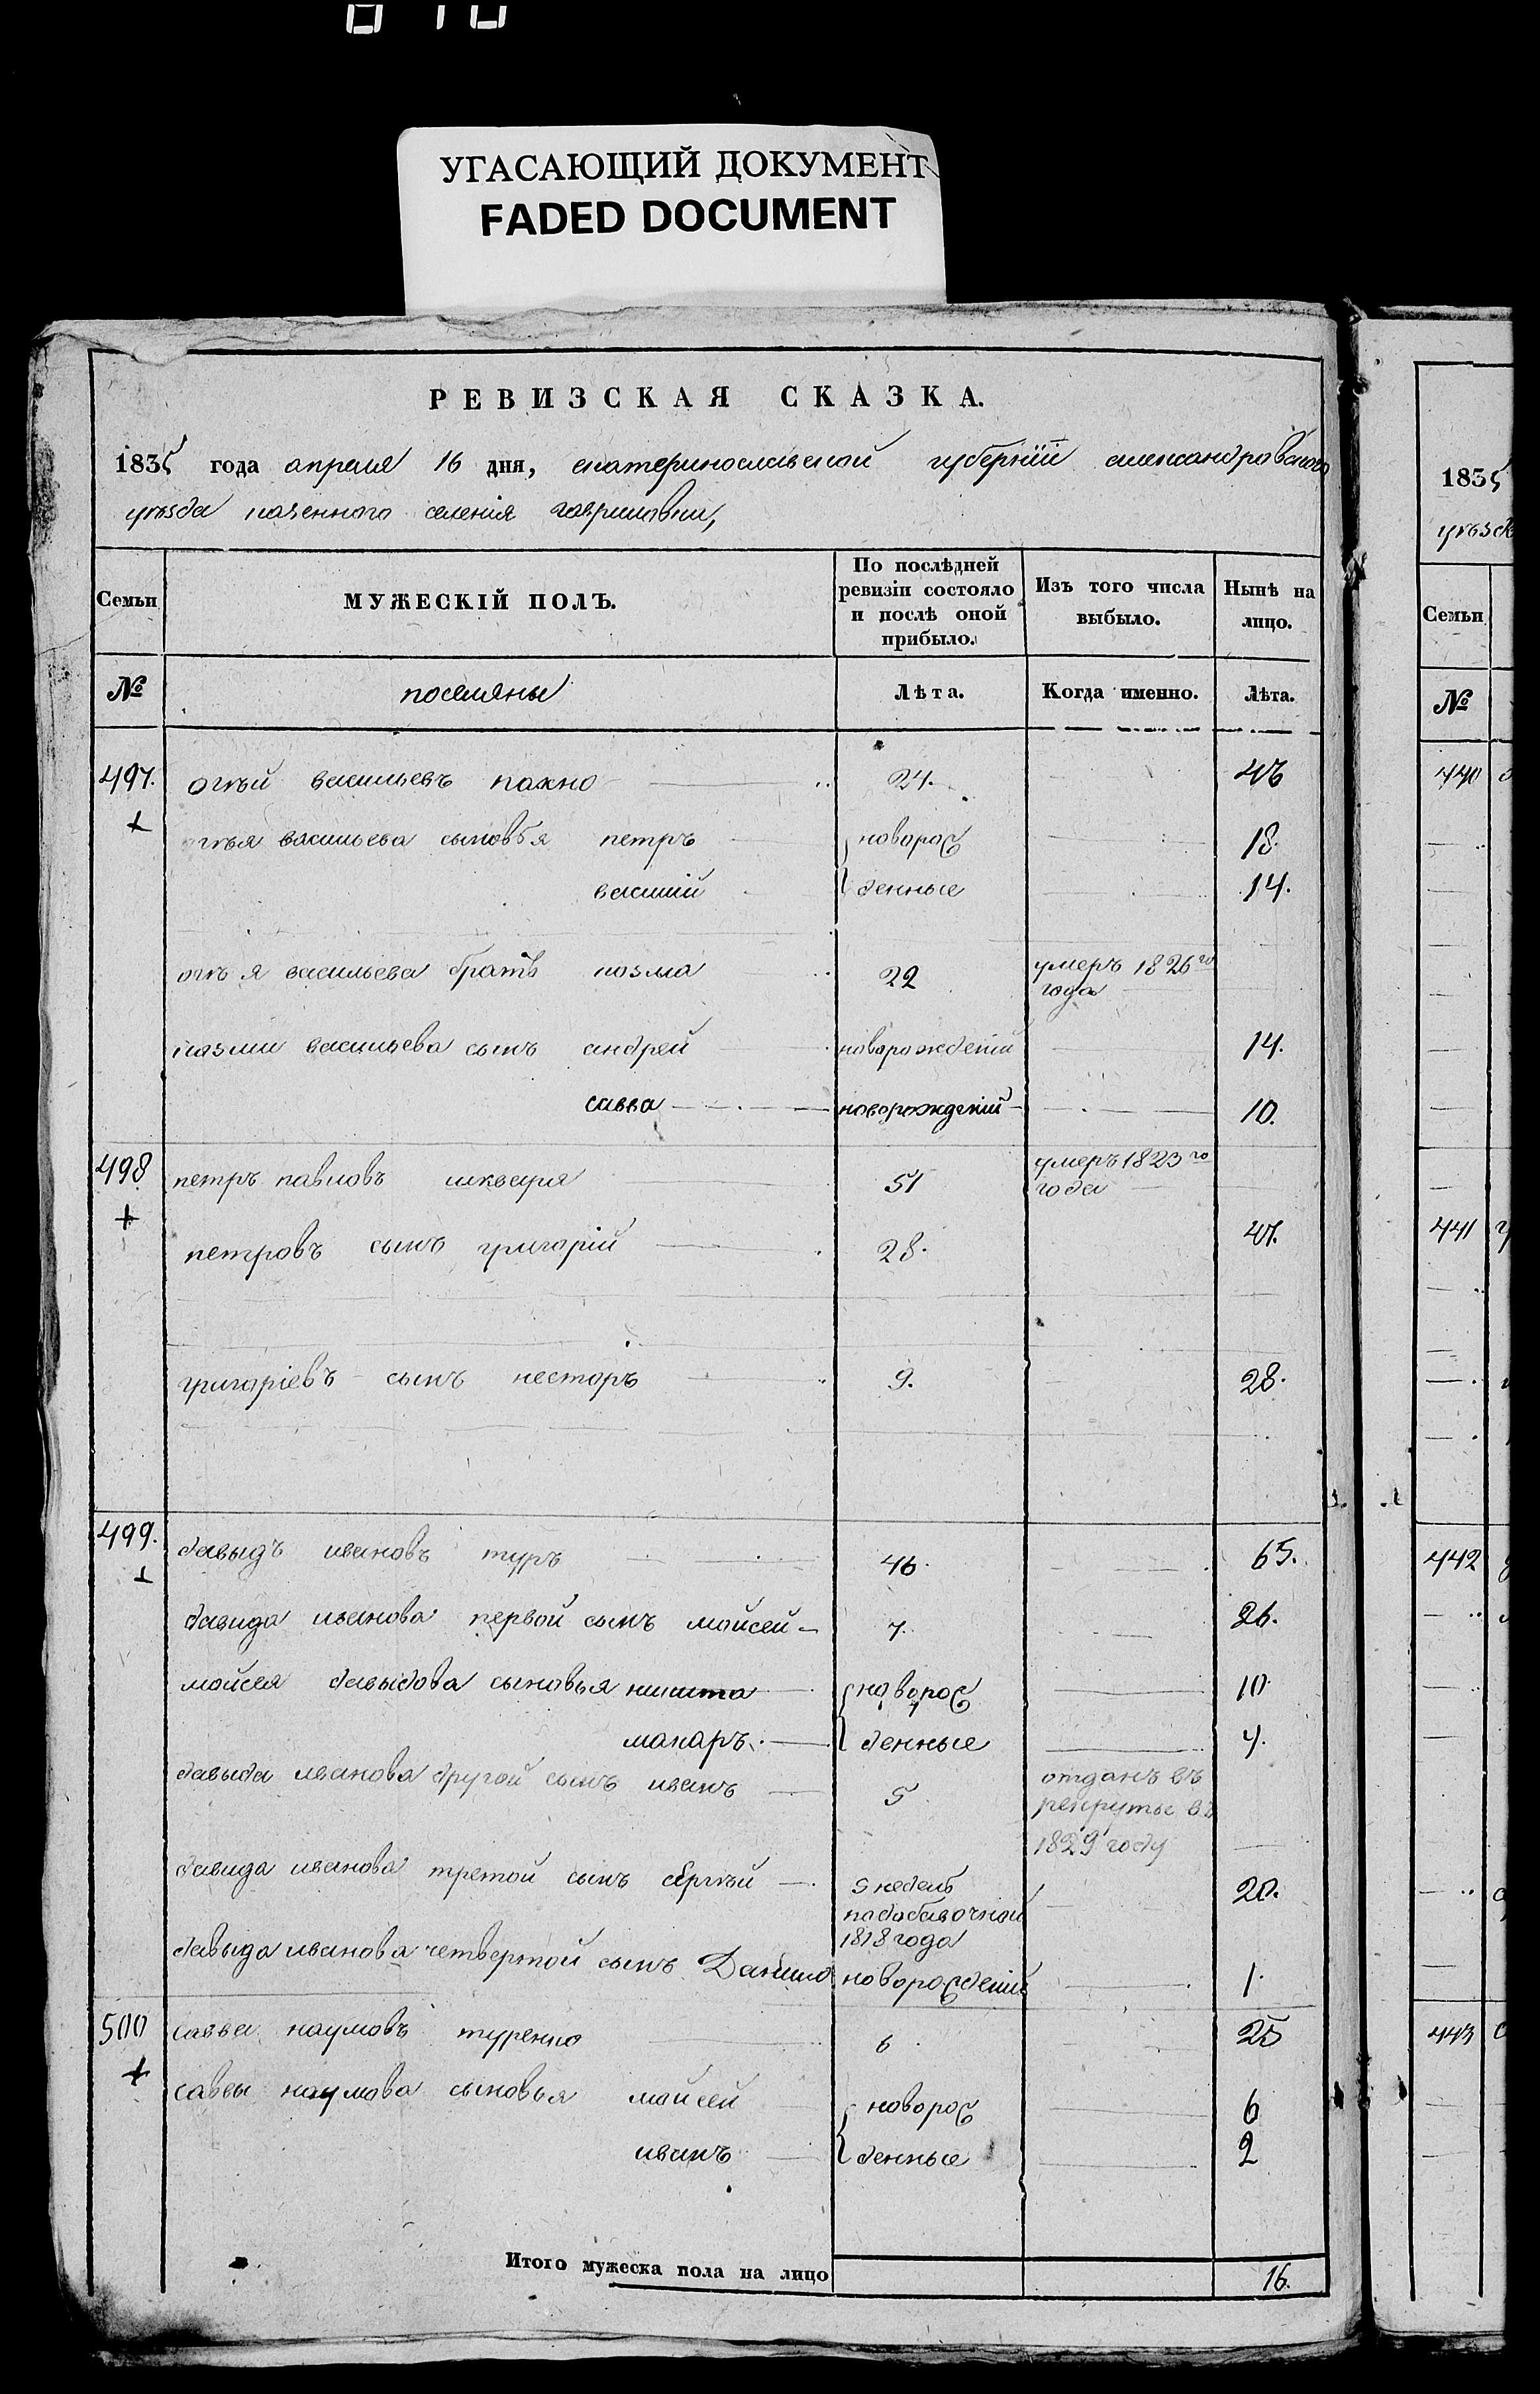 УГАСАЮЩИЙ ДОКУМЕНТ
FADED DOCUMENT
РЕВИЗСКАЯ СКАЗКА.
1835 года апреля 16 дня, екатеринославской губерніи александровского
уезда казенного селенія гавриловки,
Семьи МУЖЕСКІЙ ПОЛЪ. По послѣдней ревизіи состояло и послѣ оной прибыло. Изъ того числа выбыло. Нынѣ на лицо.
№ поселяны Лѣта. Когда именно. Лѣта.
497. васильевъ пахно 24. 46
васильева сыновья петръ новорож 18.
василій денные 14.
васильева братъ козма 22 умеръ 1826го года
козми васильева сынъ андрей новорожденій 14.
савва новорожденій 10.
498 петръ павловъ шкваря 51 умеръ 1823го года
петровъ сынъ григорій 28. 47.
григоріевъ сынъ несторъ 9. 28.
499. давыдъ ивановъ туръ 46. 65.
давида иванова первой сынъ мойсей 7. 26.
мойсея давыдова сыновья никита новорож 10
макаръ денные 4.
давыда иванова другой сынъ иванъ 5 отданъ въ рекруты въ 1829 году
давида иванова третой сынъ сергѣй 5 недель по добавочной 1818 года 20.
давыда иванова четвертой сынъ Данило новорожденій 1.
500 савва наумовъ туренко 6 25
саввы наумова сыновья мойсей новорож 6
иванъ денные 2
Итого мужеска пола на лицо 16.
1835
уезда
Семьи
№
440
441
442
443